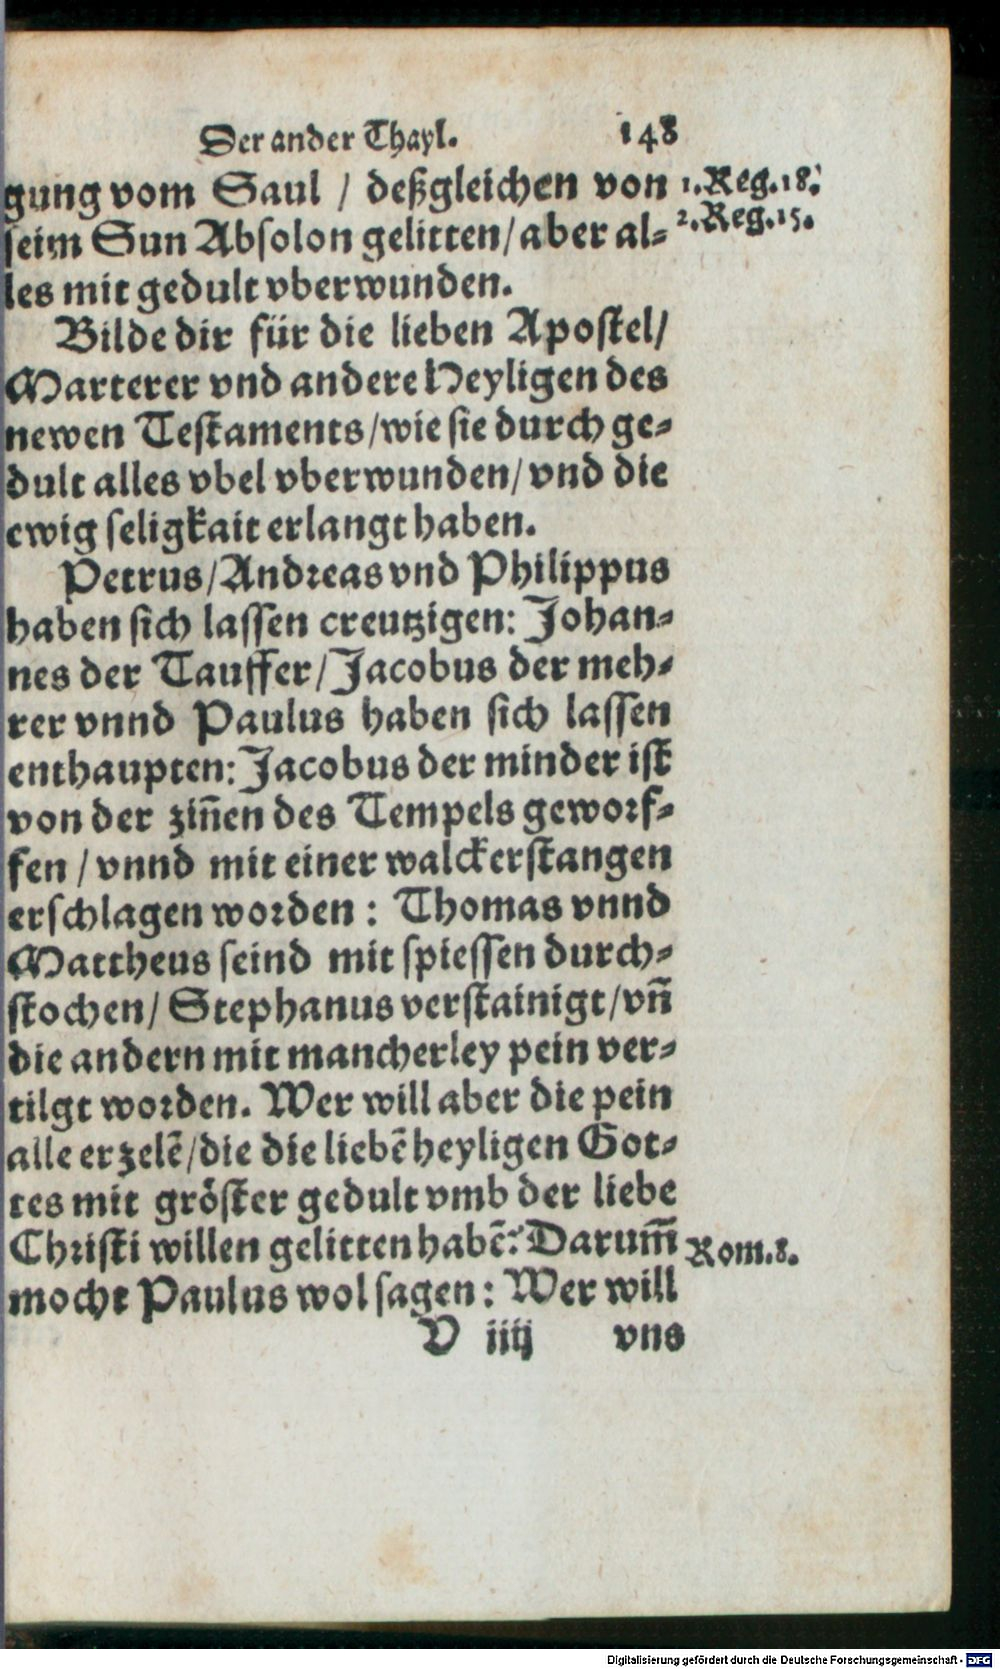 Der ander Thayl. 148
gung vom Saul / deßgleichen von 1. Reg. 18.
seim Sun Absolon gelitten / aber al- 2. Reg. 15.
les mit gedult vberwunden.
Bilde dir für die lieben Apostel /
Marterer vnd andere Heyligen des
newen Testaments / wie sie durch ge-
dult alles vbel vberwunden / vnd die
ewig seligkait erlangt haben.
Petrus / Andreas vnd Philippus
haben sich lassen creutzigen: Johan-
nes der Tauffer / Jacobus der meh-
rer vnnd Paulus haben sich lassen
enthaupten: Jacobus der minder ist
von der zin̄en des Tempels geworf-
fen / vnnd mit einer walckerstangen
erschlagen worden : Thomas vnnd
Mattheus seind mit spiessen durch-
stochen / Stephanus verstainigt / vn̄
die andern mit mancherley pein ver-
tilgt worden. Wer will aber die pein
alle erzelē / die die liebē heyligen Got-
tes mit gröster gedult vmb der liebe
Christi willen gelitten habē? Darum̄ Rom. 8.
mocht Paulus wol sagen : Wer will
V iiij vns
Digitalisierung gefördert durch die Deutsche Forschungsgemeinschaft - DFG